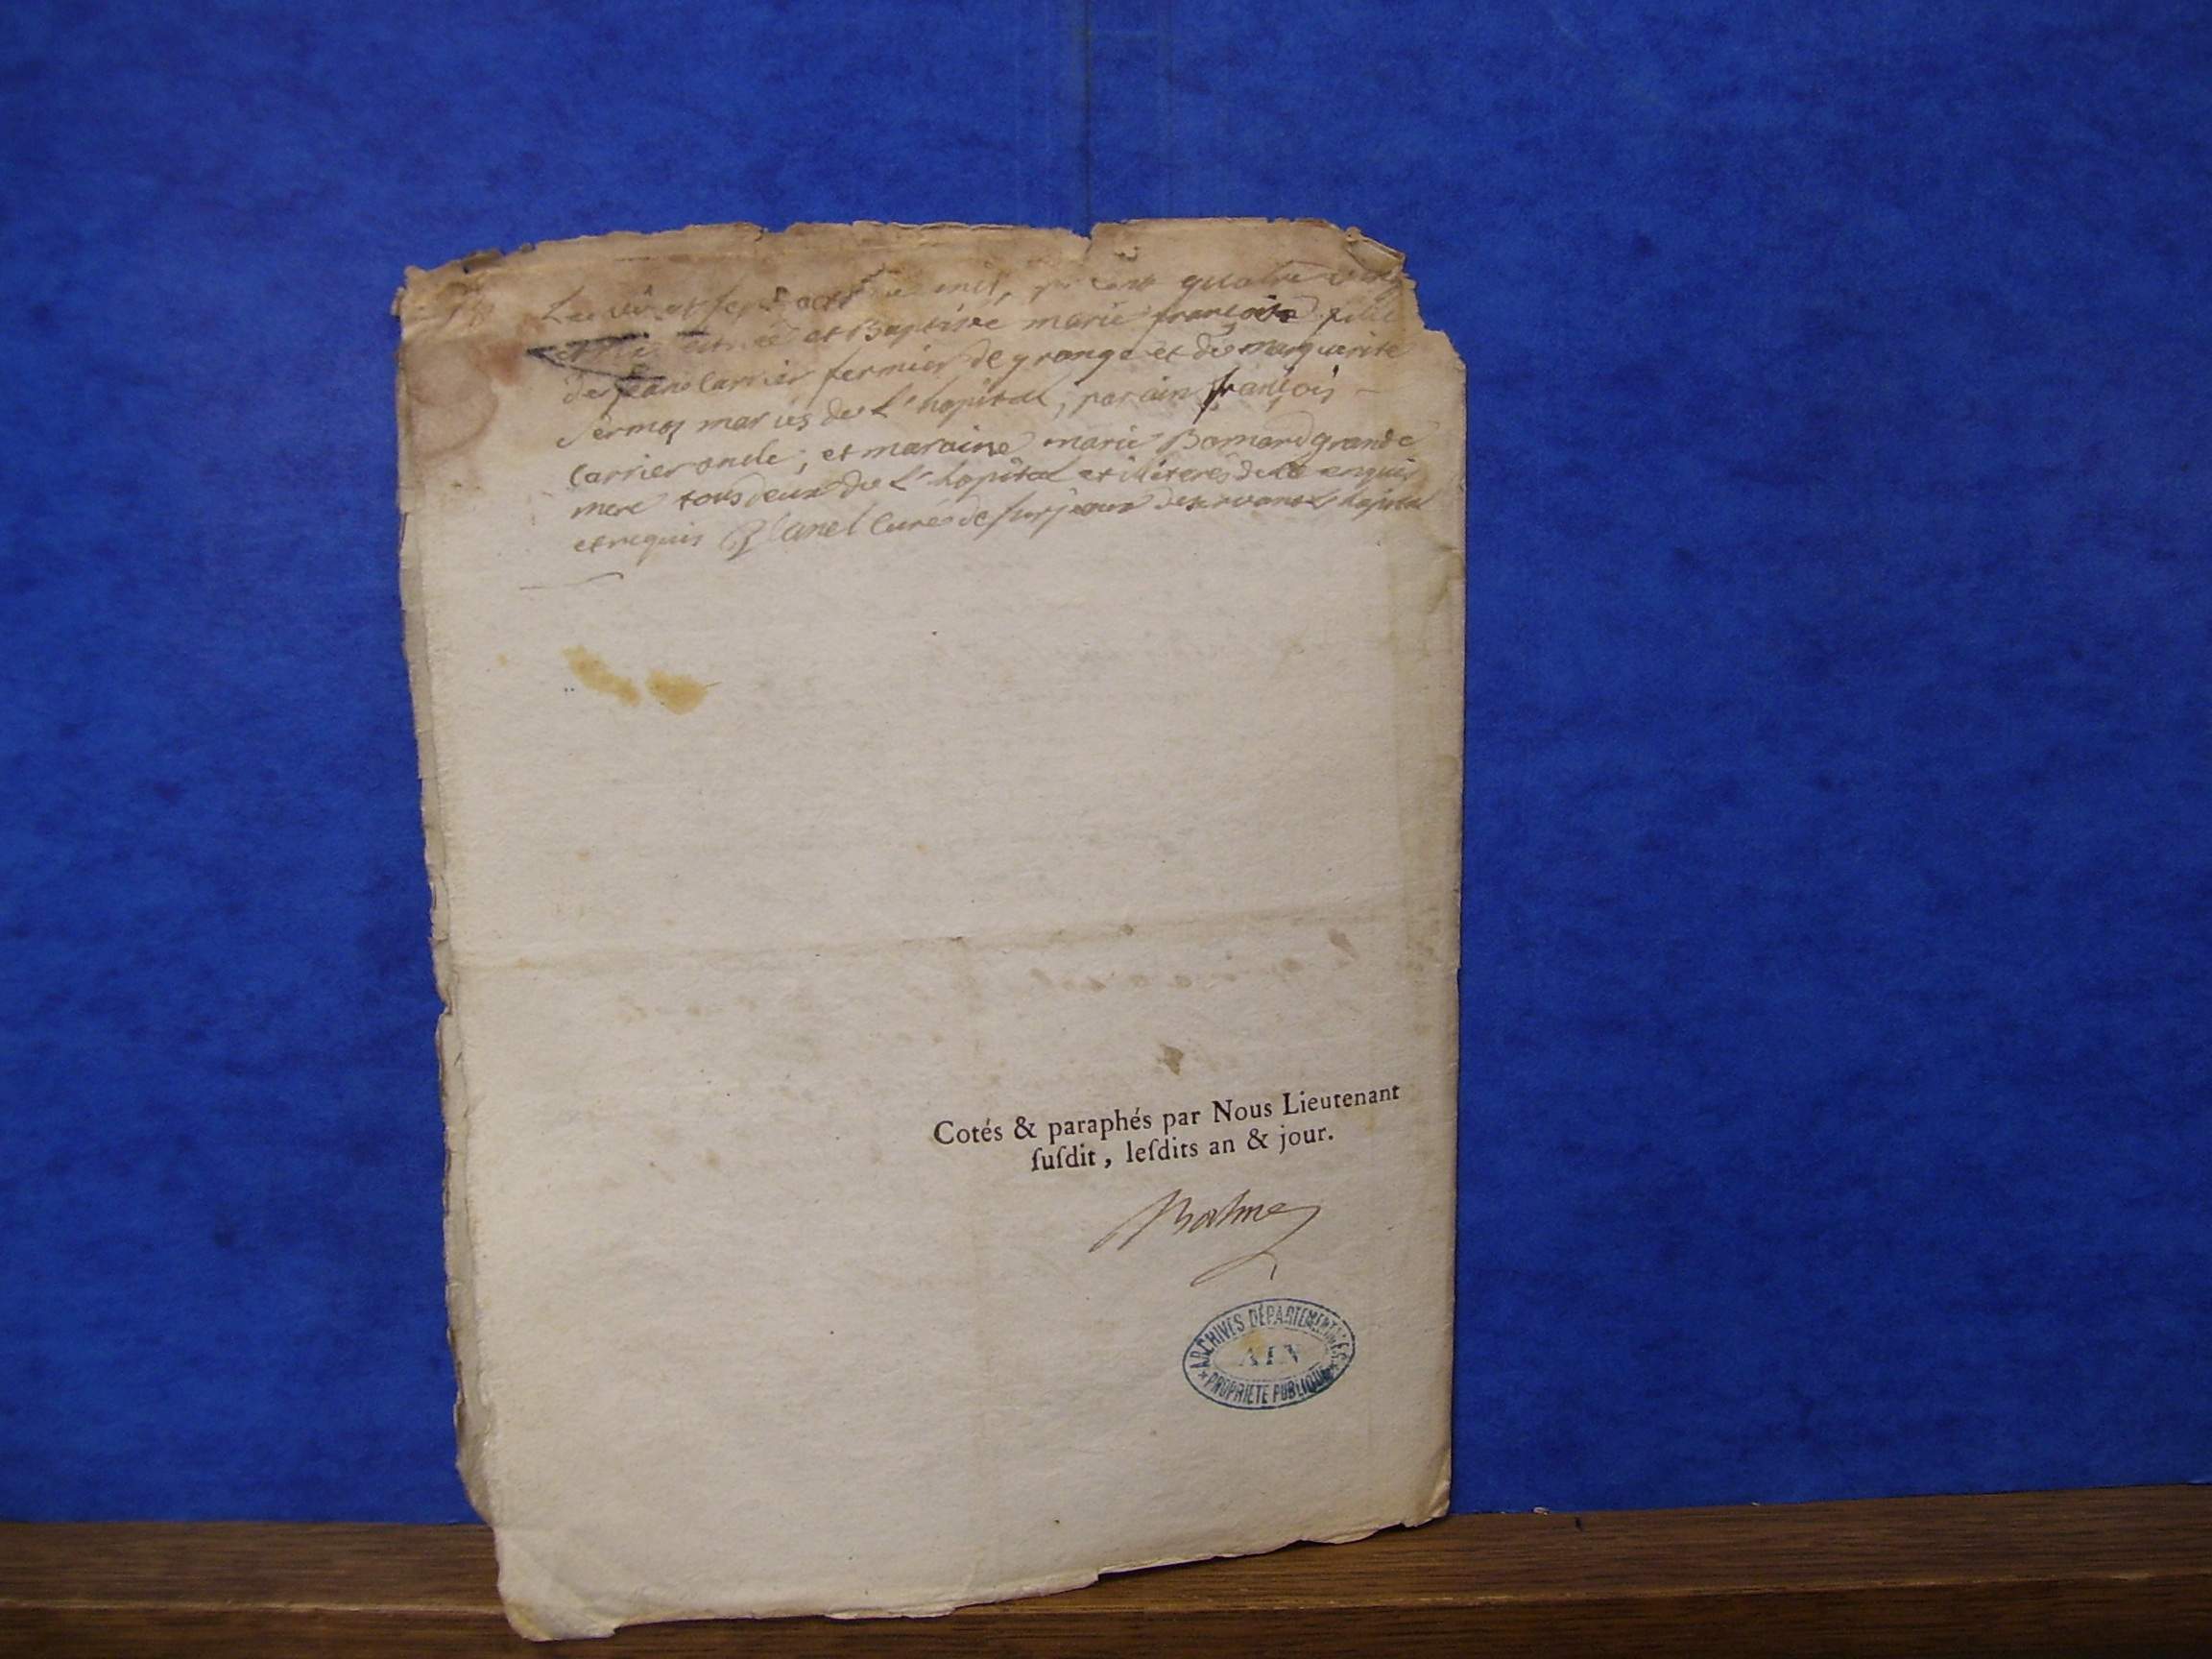 Le vingt sept octobre mil, sept cent quatre vingt
est née et Baptisée marie françoise fille
de jean Carrier fermier de grange et de marguerite
mariés de L'hopital; parain françois
Carrier oncle; et maraine marie Bornard grande
mere tous deux de L'hopital et illiterés de ce enquis
et requis Blanel Curé de surjoux deservant L'hopital
Cotés & paraphés par Nous Lieutenant
ſuſdit, leſdits an & jour.
Balme
ARCHIVES DÉPARTEMENTALES
AIN
* PROPRIETE PUBLIQUE *